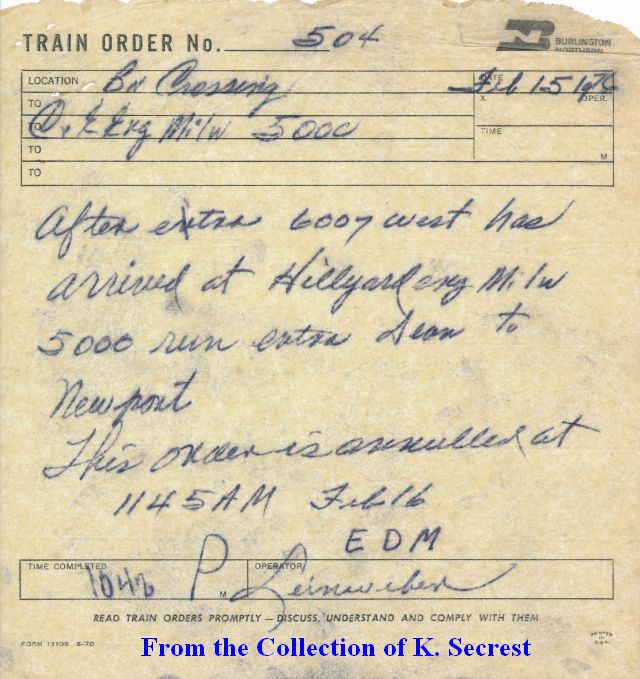 TRAIN ORDER No. 504
BURLINGTON NORTHERN
LOCATION Bn Crossing DATE Feb 15 1976
TO X OPER.
TO C. & E Eng Milw 5000 TIME
TO M
TO
After extra 6007 west has
arrived at Hillyard eng Milw
5000 run extra Dean to
Newport
This order is annulled at
1145 AM Feb 16
EDM
TIME COMPLETED 1042 P M OPERATOR Leinweber
READ TRAIN ORDERS PROMPTLY — DISCUSS, UNDERSTAND AND COMPLY WITH THEM
FORM 15108 8-70 PRINTED IN U.S.A.
From the Collection of K. Secrest